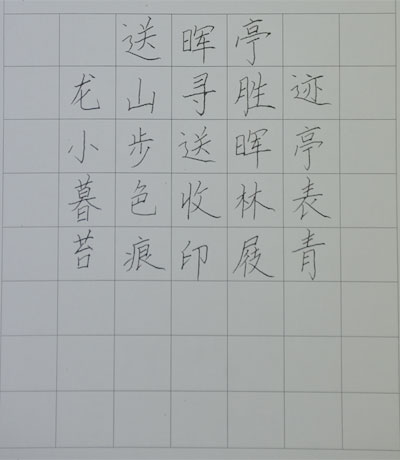 送晖亭
龙山寻胜迹
小步送晖亭
暮色收林表
苔痕印屐青